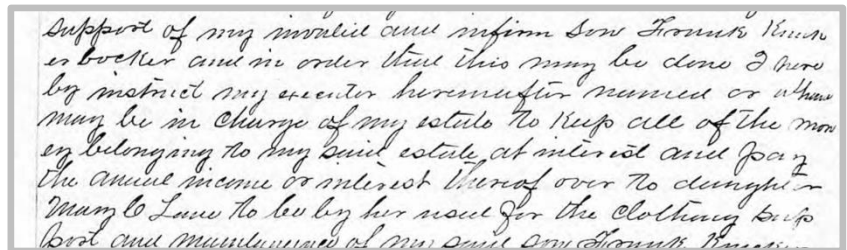 support of my invalid and infirm son Frank Knick
erbocker and in order that this may be done I here
by instruct my executer hereinafter named or who
may be in charge of my estate to keep all of the mon
ey belonging to my said estate at interest and pay
the anual income or interest thereof over to daughter
Mary C Lane to be by her used for the clothing sup
port and maintenance of my said son Frank Knick